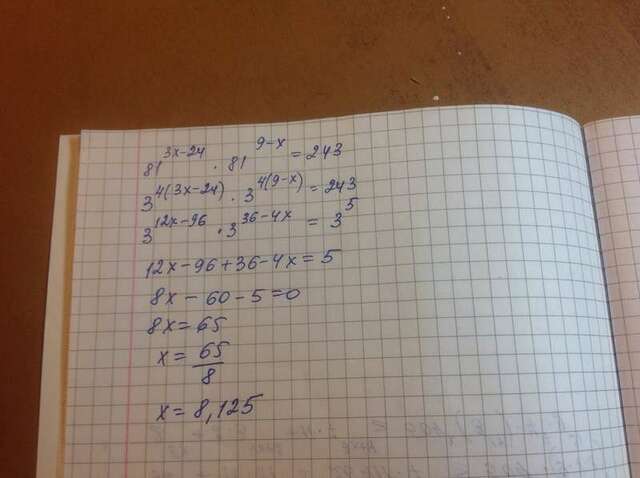 81^(3x-24) · 81^(9-x) = 243
3^(4(3x-24)) · 3^(4(9-x)) = 243
3^(12x-96) · 3^(36-4x) = 3^5
12x-96+36-4x=5
8x-60-5=0
8x=65
x=65/8
x=8,125